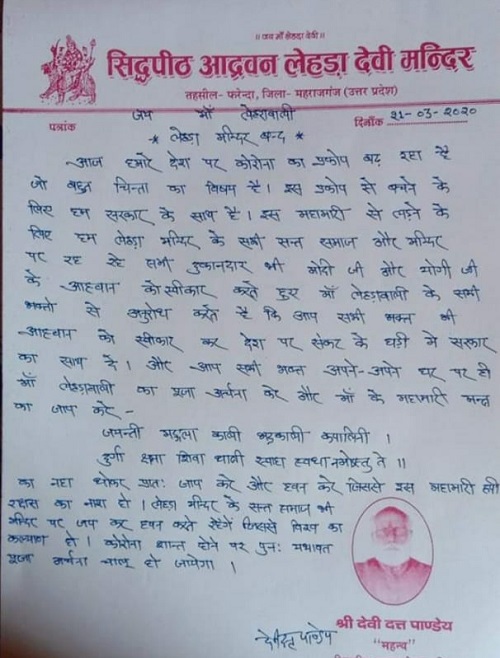 ॥ जय माँ लेहड़ा देवी ॥
सिद्धपीठ आद्रवन लेहड़ा देवी मन्दिर
तहसील- फरेन्दा, जिला- महराजगंज (उत्तर प्रदेश)
जय माँ लेहड़ावाली
पत्रांक
दिनाँक 21-03-2020
* लेहड़ा मन्दिर बन्द *
आज हमारे देश पर कोरोना का प्रकोप बढ़ रहा है
जो बहुत चिन्ता का विषय है। इस प्रकोप से बचने के
लिए हम सरकार के साथ है। इस महामारी से लड़ने के
लिए हम लेहड़ा मन्दिर के सभी सन्त समाज और मन्दिर
पर रह रहे सभी दुकानदार भी मोदी जी और योगी जी
के आहवान को स्वीकार करते हुए माँ लेहड़ावाली के सभी
भक्तो से अनुरोध करते है कि आप सभी भक्त भी
आहवान को स्वीकार कर देश पर संकट के घड़ी मे सरकार
का साथ दें। और आप सभी भक्त अपने-अपने घर पर ही
माँ लेहड़ावाली का पूजा अर्चना करे और माँ के महामारी मन्त्र
का जाप करे -
जयन्ती मङ्गला काली भद्रकाली कपालिनी ।
दुर्गा क्षमा शिवा धात्री स्वाहा स्वधा नमोस्तु ते ॥
का नहा धोकर प्रातः जाप करे और हवन करे जिससे इस महामारी रूपी
राक्षस का नाश हो । लेहड़ा मन्दिर के सन्त समाज भी
मन्दिर पर जप कर हवन करते रहेंगे जिससे विश्व का
कल्याण हो । कोरोना शान्त होने पर पुनः यथावत
पूजा अर्चना चालू हो जायेगा ।
देवीदत्त पाण्डेय
श्री देवी दत्त पाण्डेय
"महन्थ"